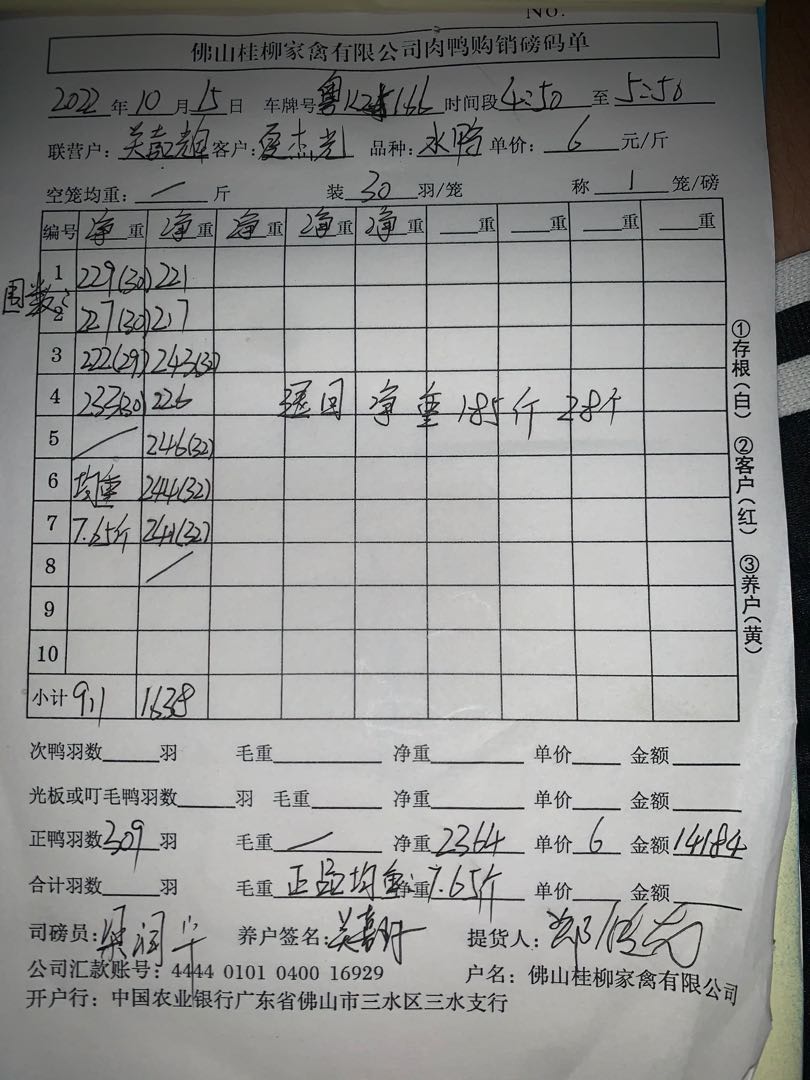 No.
佛山桂柳家禽有限公司肉鸭购销磅码单
2022年10月15日 车牌号 时间段4:50至5:50
联营户: 客户: 品种:水鸭 单价:6元/斤
空笼均重:/斤 装30羽/笼 称1笼/磅
编号 净重 净重 净重 净重 净重 重 重 重 重
1 229(30) 221
围数:
2 227(30) 217
3 222(29) 243(32)
4 233(30) 226 退回 净重 185斤 28个
5 / 246(32)
6 均重 244(32)
7 7.65斤 241(32)
8 /
9
10
小计 911 1638
①存根(白) ②客户(红) ③养户(黄)
次鸭羽数 羽 毛重 净重 单价 金额
光板或叮毛鸭羽数 羽 毛重 净重 单价 金额
正鸭羽数309羽 毛重/ 净重2364 单价6 金额14184
合计羽数 羽 毛重 正品均重 净重7.65斤 单价 金额
司磅员: 养户签名: 提货人:
公司汇款账号:4444 0101 0400 16929 户名:佛山桂柳家禽有限公司
开户行:中国农业银行广东省佛山市三水区三水支行